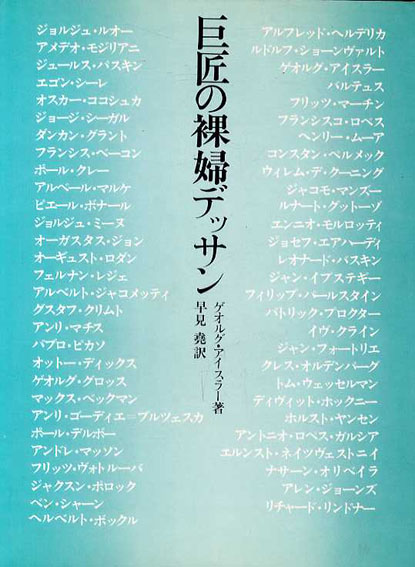 アルフレッド・ヘルデリカ
ルドルフ・ショーンヴァルト
ゲオルグ・アイスラー
バルテュス
フリッツ・マーチン
フランシスコ・ロペス
ヘンリー・ムーア
コンスタン・ペルメック
ウィレム・デ・クーニング
ジャコモ・マンズー
ルナート・グットーゾ
エンニオ・モルロッティ
ジョセフ・エアハーディ
レオナード・バスキン
ジャン・イプステギー
フィリップ・パールスタイン
パトリック・プロクター
イヴ・クライン
ジャン・フォートリエ
クレス・オルデンバーグ
トム・ウェッセルマン
デイヴィット・ホックニー
ホルスト・ヤンセン
アントニオ・ロペス・ガルシア
エルンスト・ネイツヴェストニイ
ナサーン・オリベイラ
アレン・ジョーンズ
リチャード・リンドナー
巨匠の裸婦デッサン
ゲオルグ・アイスラー著
早見 堯訳
ジョルジュ・ルオー
アメデオ・モジリアニ
ジュールス・パスキン
エゴン・シーレ
オスカー・ココシュカ
ジョージ・シーガル
ダンカン・グラント
フランシス・ベーコン
ポール・クレー
アルベール・マルケ
ピエール・ボナール
ジョルジュ・ミーヌ
オーガスタス・ジョン
オーギュスト・ロダン
フェルナン・レジェ
アルベルト・ジャコメッティ
グスタフ・クリムト
アンリ・マチス
パブロ・ピカソ
オットー・ディックス
ゲオルグ・グロッス
マックス・ベックマン
アンリ・ゴーディエ=ブルツェスカ
ポール・デルボー
アンドレ・マッソン
フリッツ・ヴォトルーバ
ジャクスン・ポロック
ベン・シャーン
ヘルベルト・ボックル